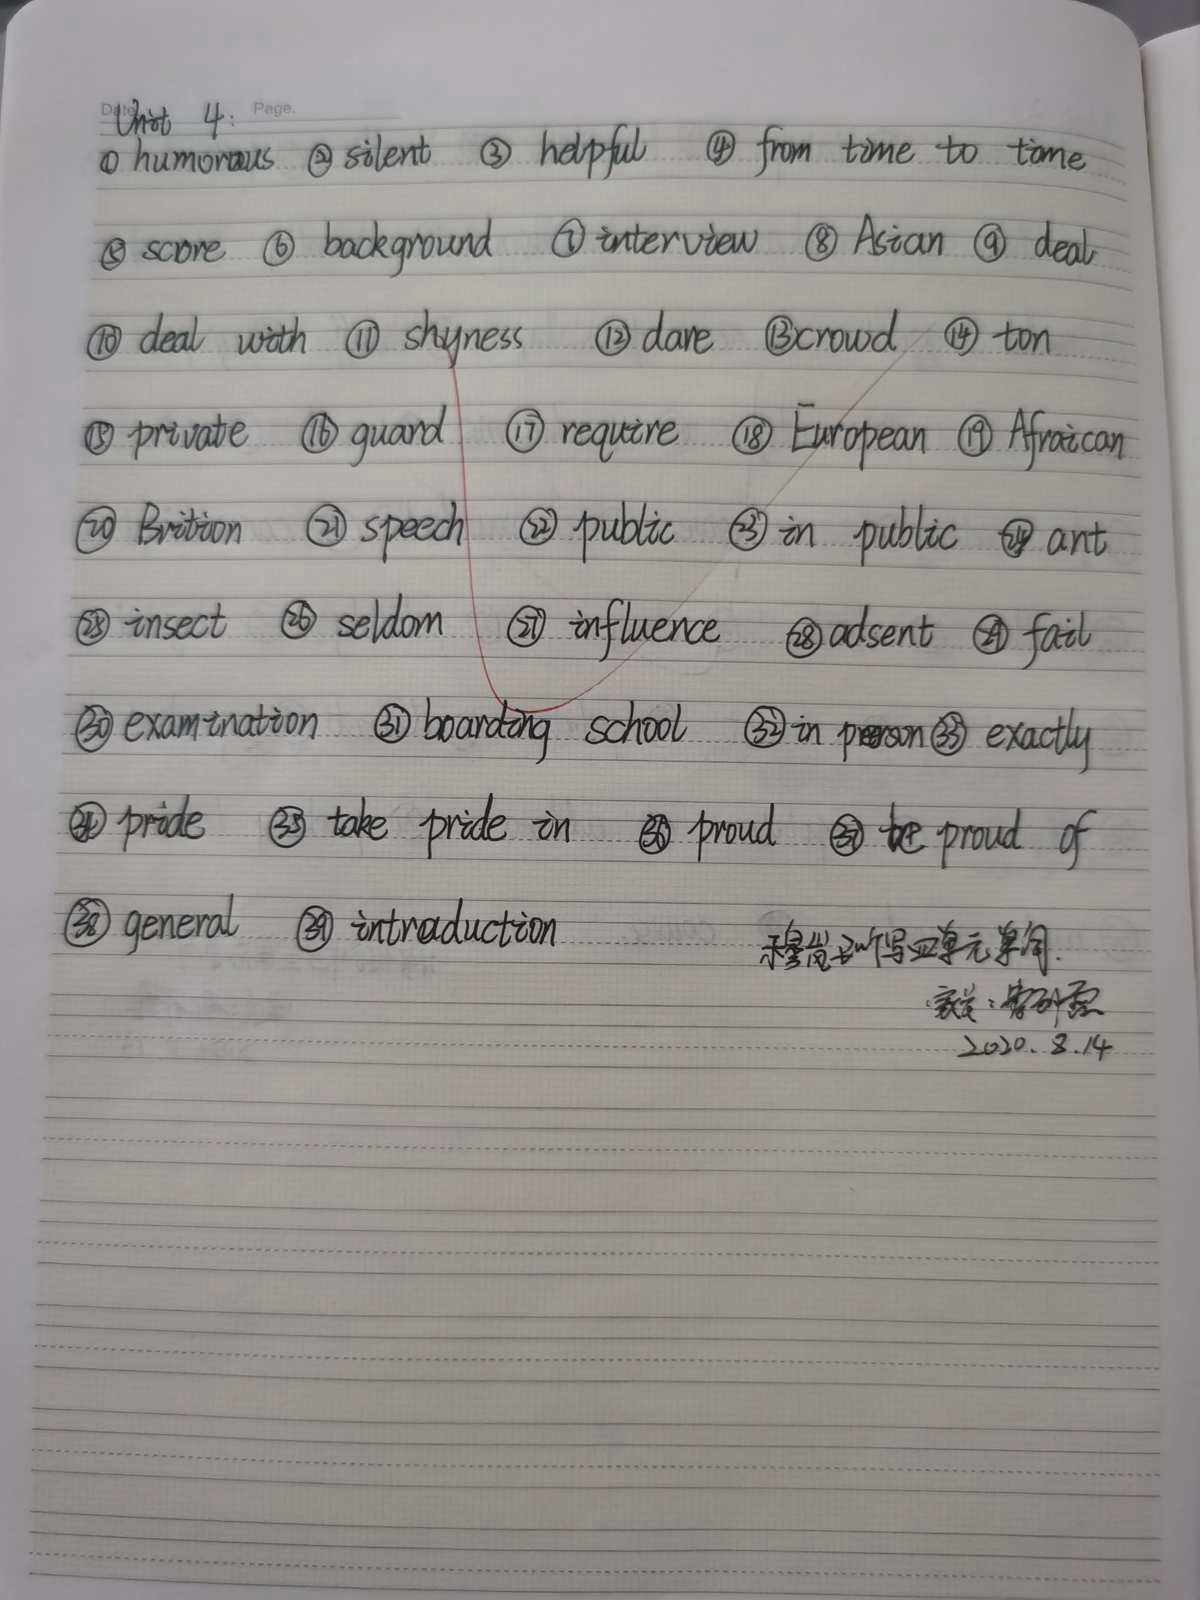 Date Page.
Unit 4:
① humorous ② silent ③ helpful ④ from time to time
⑤ score ⑥ background ⑦ interview ⑧ Asian ⑨ deal
⑩ deal with ⑪ shyness ⑫ dare ⑬ crowd ⑭ ton
⑮ private ⑯ guard ⑰ require ⑱ European ⑲ Afraican
⑳ Brition ㉑ speech ㉒ public ㉓ in public ㉔ ant
㉕ insect ㉖ seldom ㉗ influence ㉘ adsent ㉙ fail
㉚ examination ㉛ boarding school ㉜ in person ㉝ exactly
㉞ pride ㉟ take pride in ㊱ proud ㊲ be proud of
㊳ general ㊴ introduction
听写四单元单词.
家长:
2020.8.14